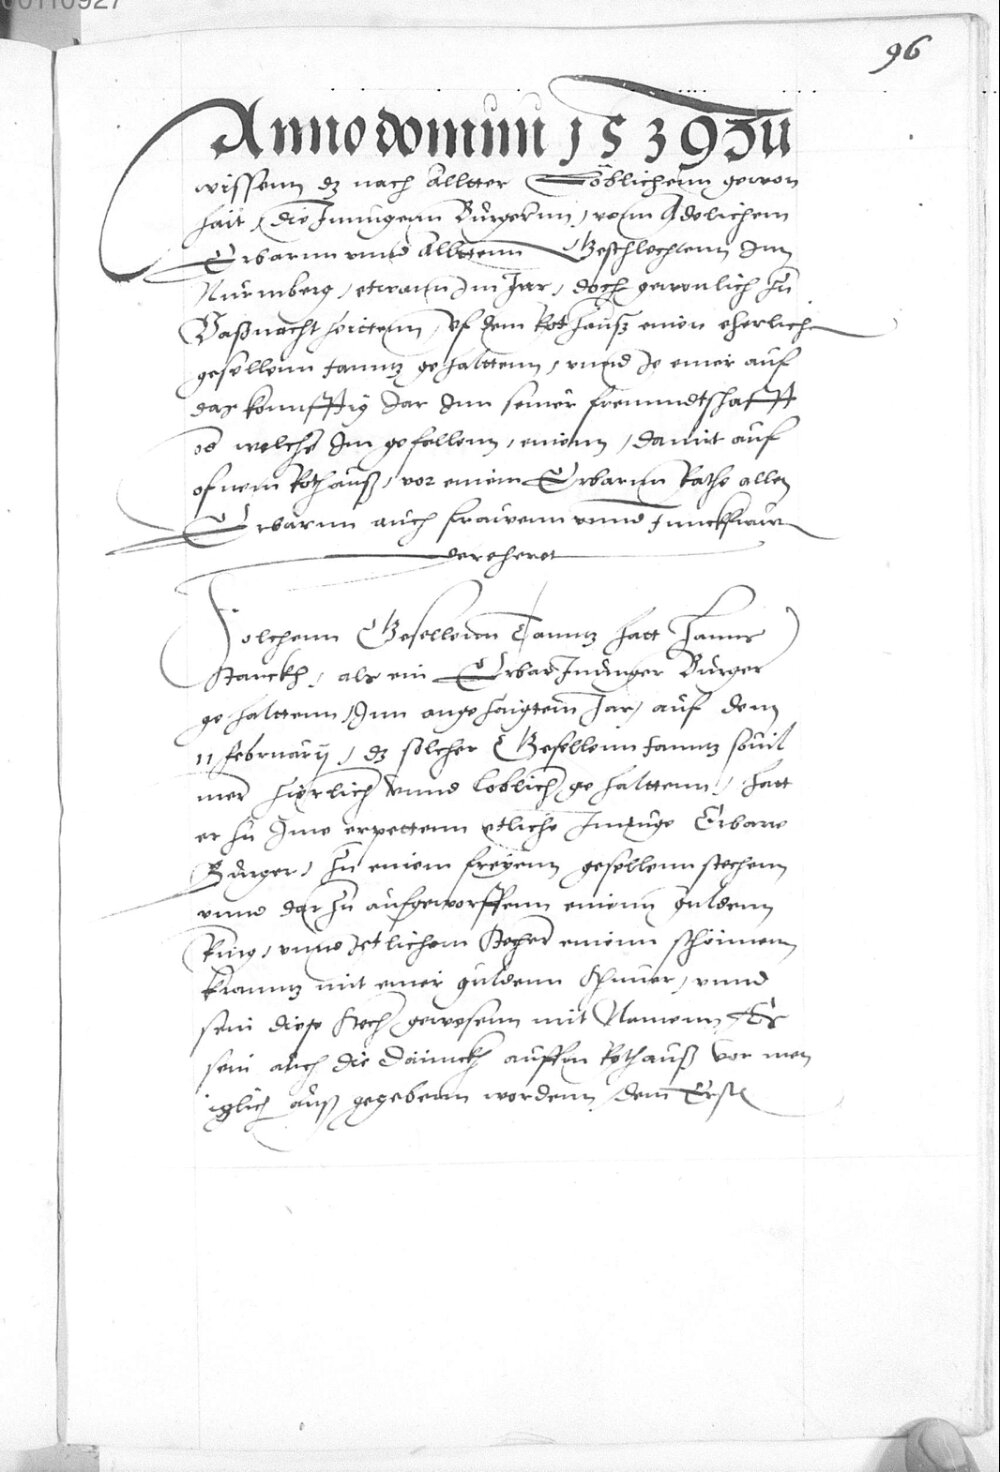 96
Anno domini 1539 Zu
wissenn dz nach Alltter Löblichenn gewon
hait, die Jnnngenn Burgerinn, vonn Adelichem
Erbarnn vnnd Allttenn Geschlechtenn Jnn
Nurmberg, etwann Jm Jar, doch gewonlich zu
Vaßnacht zeittenn, vf dem Rothauß einen eherlich
gesellenn tanntz gehalttenn, vnnd Je einer auf
das konnfftig Jar Jnn seiner freunndtschafft
od welche Jm gefellenn, einenn, damit auf
ofnem Rothauß, vor einem Erbarnn Rathe allen
Erbarnn auch frawenn vnnd Junckfraw
verehret
Solchenn Gesellenn Tanntz hatt Hanns
Starckh, als ein Erbar Junnger Burger
gehalttenn, Jnn angezaigtem Jar, auf den
11 februarij, dz solcher Gesellenn tanntz souil
mer zierlich vnnd loblich gehalttenn, hatt
er zu Jme erpettenn etliche Junnge Erbare
Burger, zu einem freyenn gesellenn stechenn
vnnd dar zu aufgeworffenn einenn guldenn
Ring, vnnd Jetlichem Stecher einenn schönnenn
kranntz mit einer guldenn Schnuer, vnnd
sein diese Stech gewesenn mit Namenn, Es
sein auch die Dännckh auffm Rothauß vor men
igglich auß gegebenn wordenn, dem Erstn